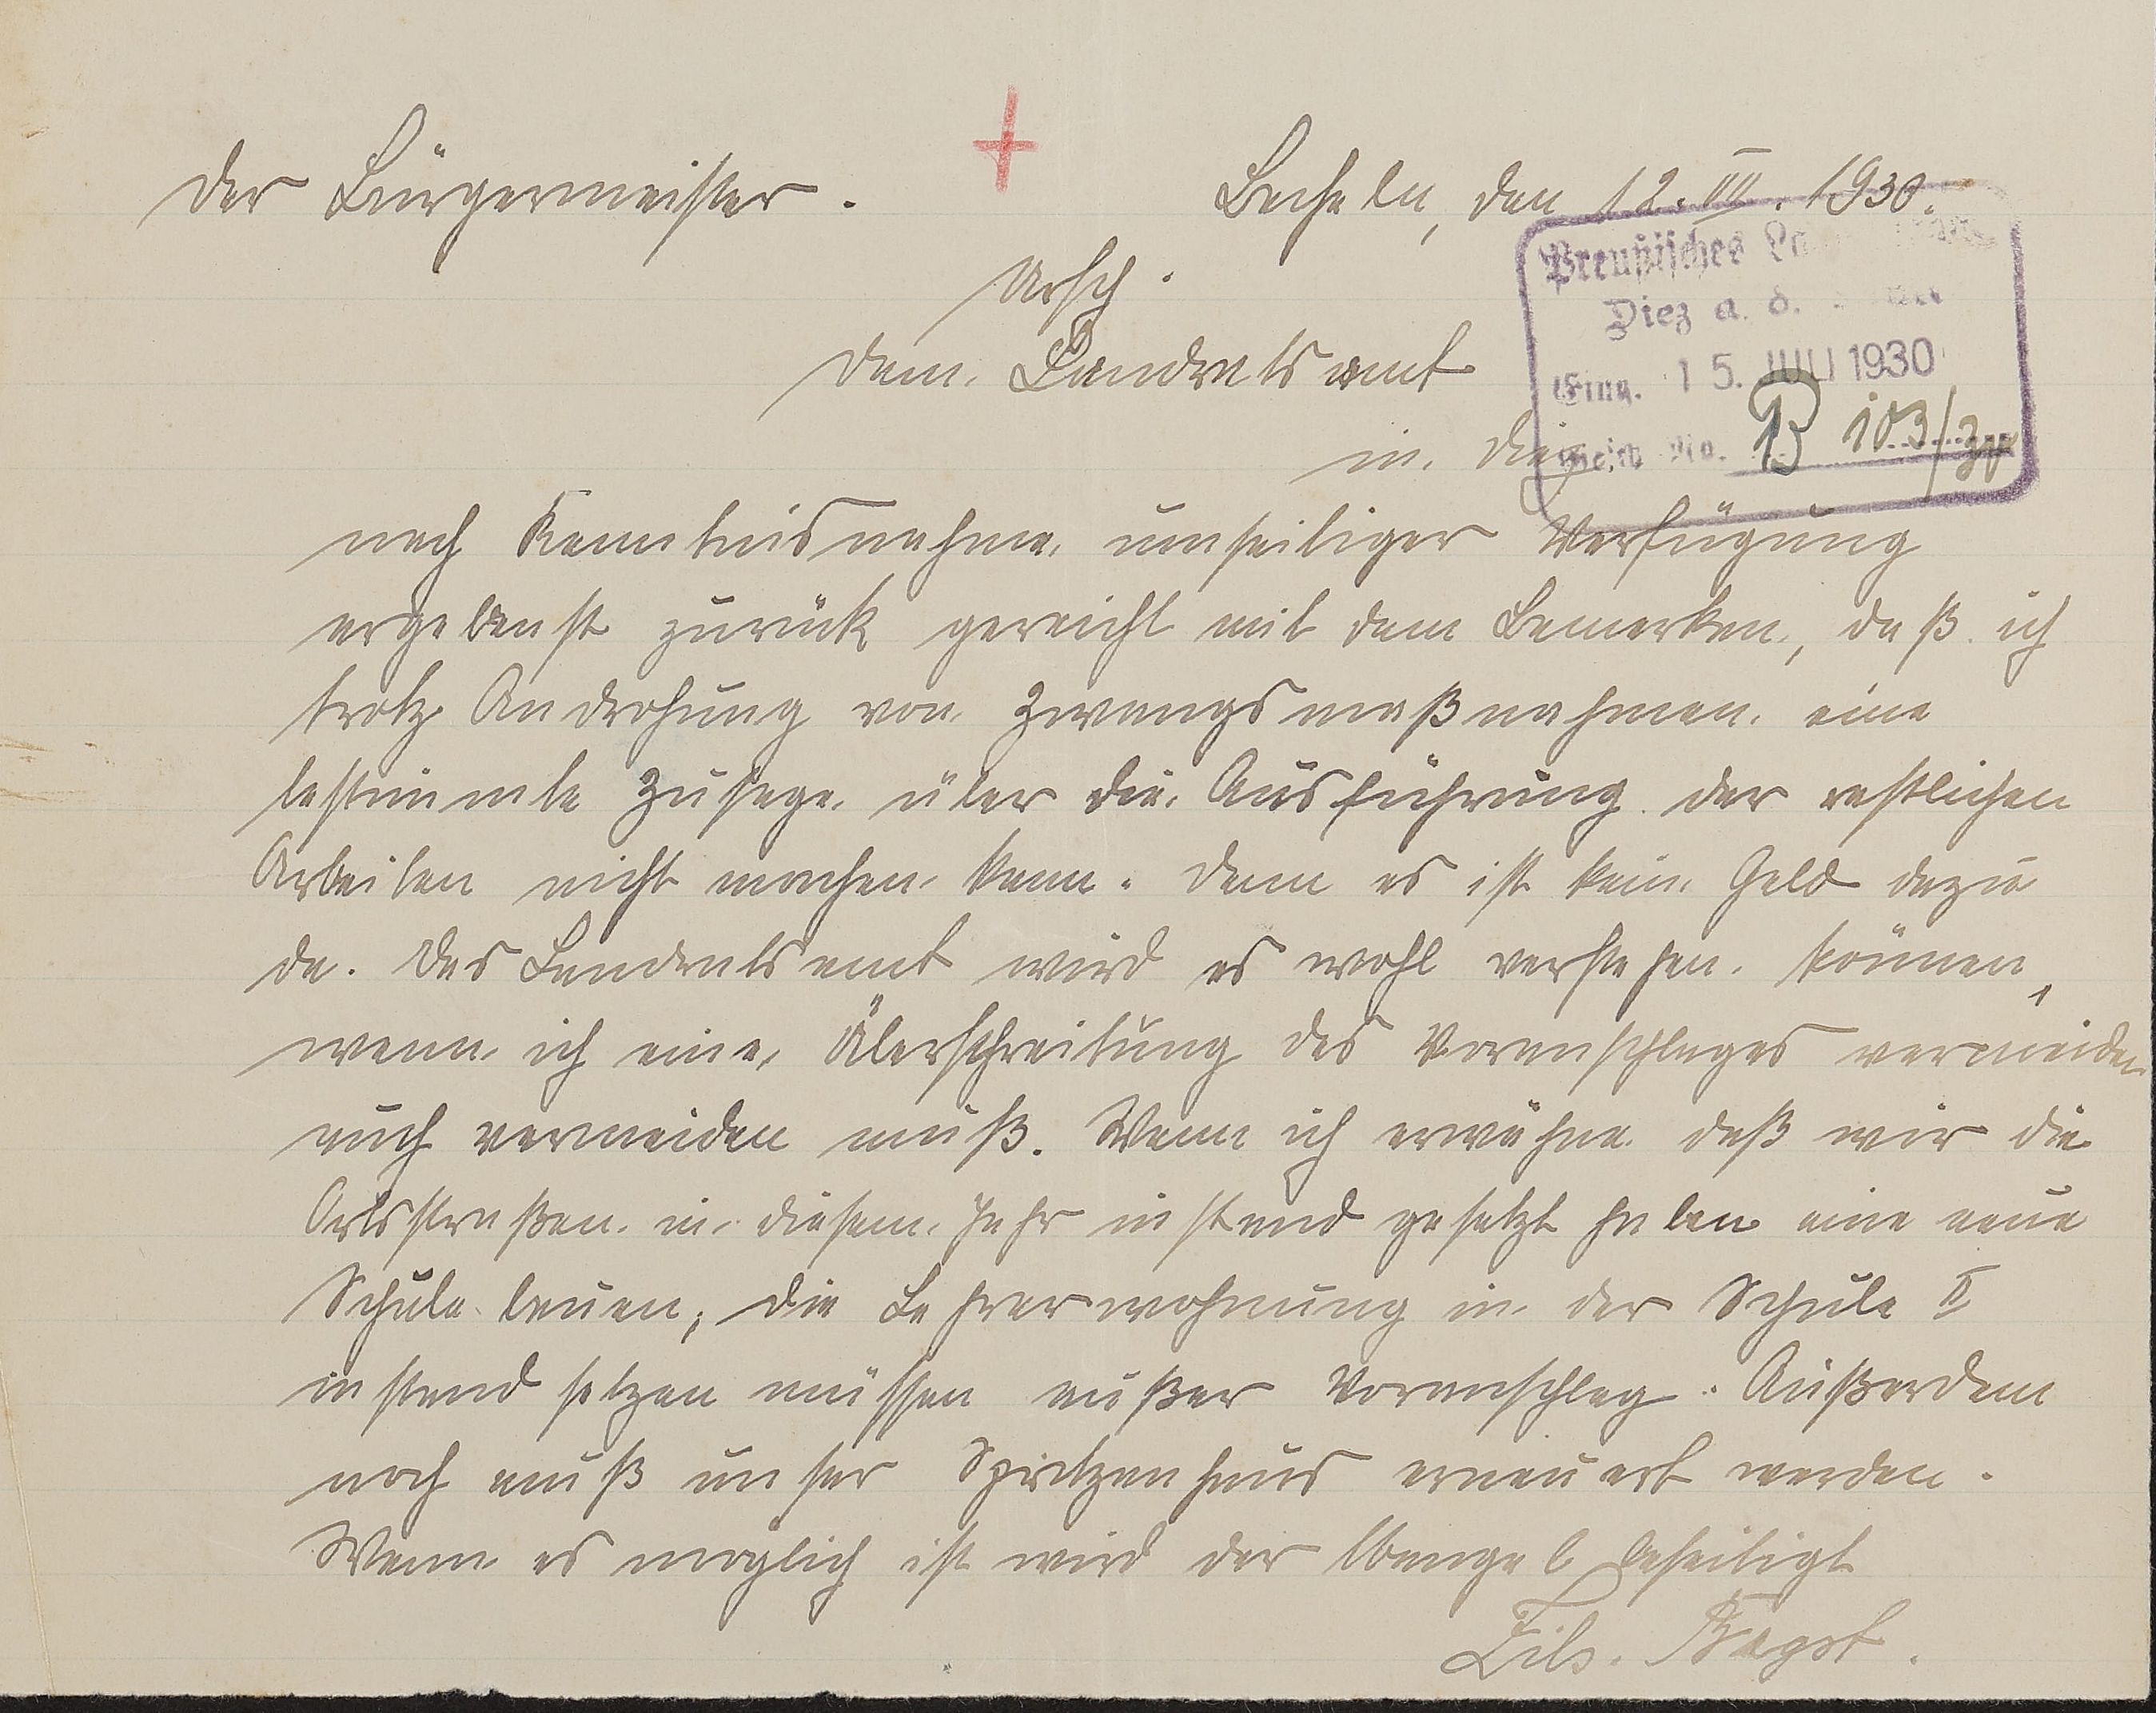 Der Bürgermeister.
Becheln, den 12. VII. 1930.
Urſch.
Preußisches
Diez a. d.
Eing. 15. JULI 1930
B 103/30
dem Landratsamt
in Diez
nach Kenntnisnahme umseitiger Verfügung
ergebenst zurück gereicht mit dem Bemerken, daß ich
trotz Androhung von Zwangsmaßnahmen eine
bestimmte Zusage über die Ausführung der restlichen
Arbeiten nicht machen kann. Denn es ist kein Geld dazu
da. Das Landratsamt wird es wohl verstehen können,
wenn ich eine Überschreitung des Voranschlages vermeiden
auch vermeiden muß. Wenn ich erwähne daß wir die
Ortsstraßen in diesem Jahr instand gesetzt haben eine neue
Schule bauen, die Lehrerwohnung in der Schule II
instand setzen müssen außer Voranschlag. Außerdem
noch muß unser Spritzenhaus erneuert werden.
Wenn es moglich ist wird der Mangel beseitigt